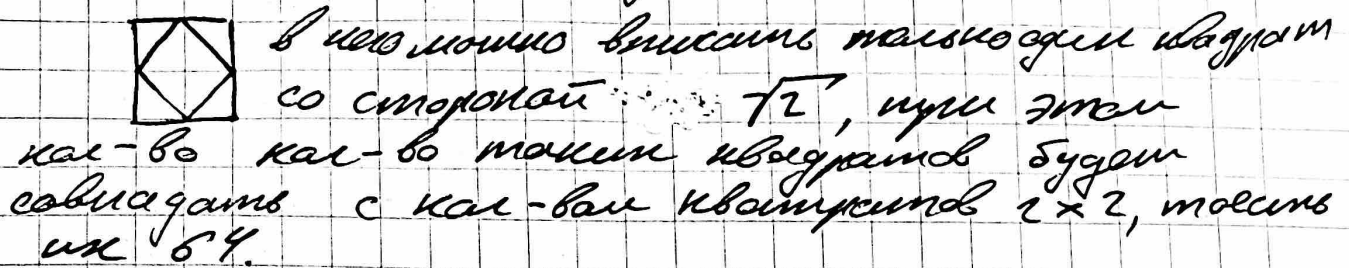 в него можно вписать только один квадрат
со стороной √2, при этом
кол-во кол-во таких квадратов будет
совпадать с кол-вом квадратов 2×2, тоесть
их 64.